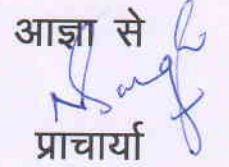 आज्ञा से
प्राचार्या